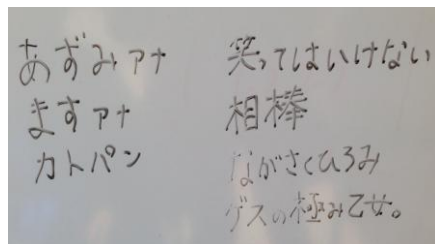 あずみアナ
ますアナ
カトパン
笑ってはいけない
相棒
ながさくひろみ
ゲスの極み乙女。